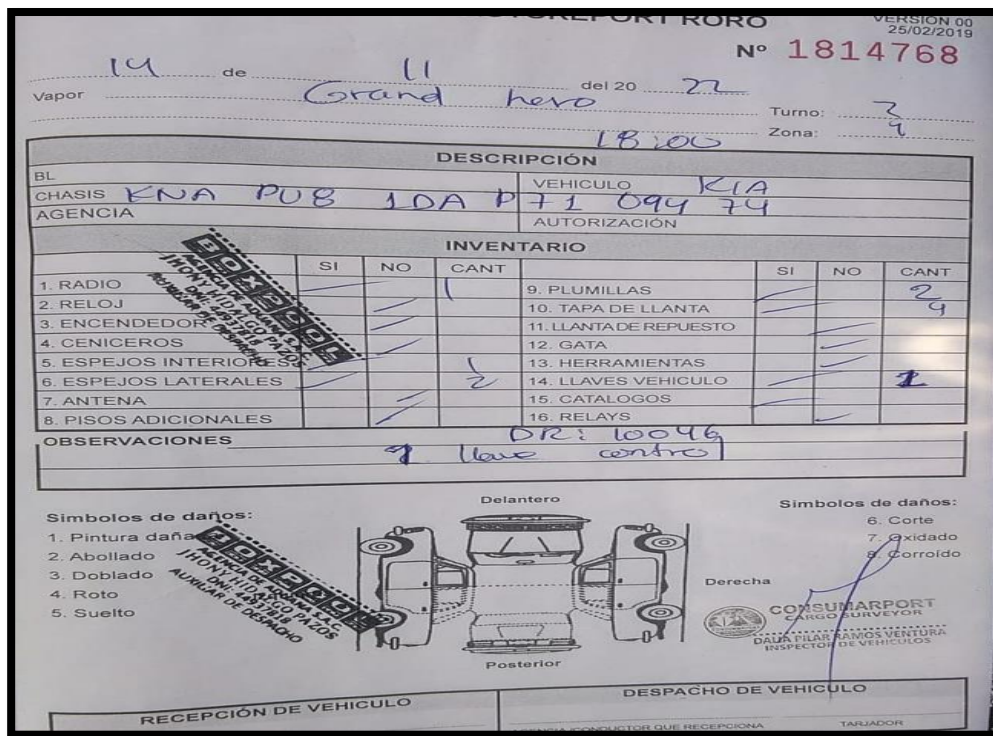 REPORT RORO
VERSION 00
25/02/2019
Nº 1814768
14 de 11 del 20 22
Vapor Grand hero
Turno: 3
Zona: 4
18:00
DESCRIPCIÓN
BL
VEHICULO KIA
CHASIS KNA PU8 1DA P71 094 74
AGENCIA
AUTORIZACIÓN
INVENTARIO
SI NO CANT SI NO CANT
1. RADIO 1 9. PLUMILLAS 2
2. RELOJ 10. TAPA DE LLANTA 4
3. ENCENDEDOR 11. LLANTA DE REPUESTO
4. CENICEROS 12. GATA
5. ESPEJOS INTERIORES 1 13. HERRAMIENTAS
6. ESPEJOS LATERALES 2 14. LLAVES VEHICULO 1
7. ANTENA 15. CATALOGOS
8. PISOS ADICIONALES 16. RELAYS
AGENCIA DE ADUANA S.A.C.
JHONY HIDALGO PAZOS
DNI: 44937618
AUXILIAR DE DESPACHO
OBSERVACIONES DR: 10046
1 llave control
Simbolos de daños:
1. Pintura daña
2. Abollado
3. Doblado
4. Roto
5. Suelto
AGENCIA DE ADUANA S.A.C.
JHONY HIDALGO PAZOS
DNI: 44937618
AUXILIAR DE DESPACHO
Delantero
Derecha
Posterior
Simbolos de daños:
6. Corte
7. Oxidado
8. Corroído
CONSUMARPORT
CARGO SURVEYOR
DALIA PILAR RAMOS VENTURA
INSPECTOR DE VEHICULOS
RECEPCIÓN DE VEHICULO
DESPACHO DE VEHICULO
CONDUCTOR QUE RECEPCIONA
TARJADOR